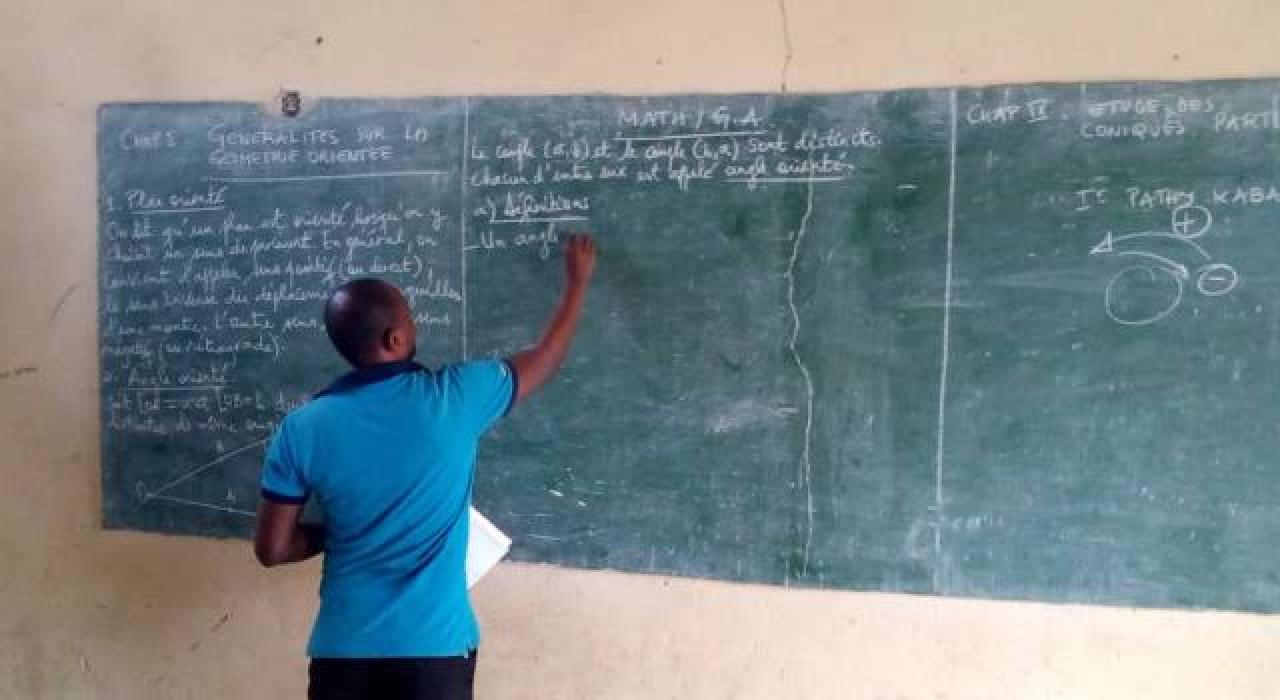 CHAP I GENERALITES SUR LA
GEOMETRIE ORIENTEE
1. Plan orienté
On dit qu'un plan est orienté lorsqu'on y
choisit un sens de En général, on
convient d'appeler, sens positif (ou direct),
le sens inverse du déplacement aiguilles
d'une montre. L'autre sens, sens
négatif (ou rétrograde).
2. Angle orienté
de même
B
O
A
MATH / G.A
Le couple (a,b) et le couple (b,a) sont distincts.
Chacun d'entre eux est appelé angle orienté.
a) Définitions
- Un angle
CHAP II. ETUDE DES
CONIQUES PARTI
Ir PATHY KABA
+
-